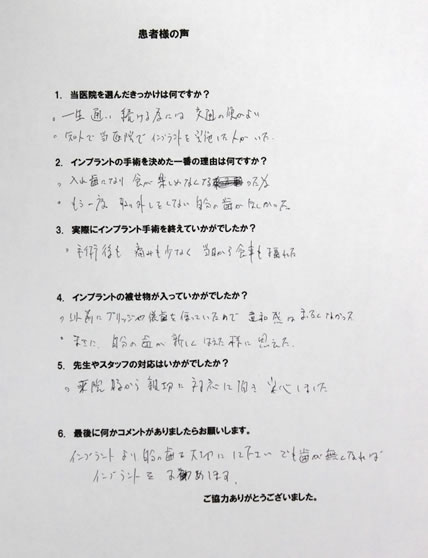 患者様の声
1. 当医院を選んだきっかけは何ですか？
。一生通い続ける為には 交通の便がよい
。知人で当医院でインプラントを実施した人がいた。
2. インプラントの手術を決めた一番の理由は何ですか？
。入れ歯になり 食が楽しめなくなった為
。もう一度 取り外しをしない自分の歯がほしかった。
3. 実際にインプラント手術を終えていかがでしたか？
。手術後も 痛みも少なく 当日から食事も摂れた
4. インプラントの被せ物が入っていかがでしたか？
。以前にブリッジや仮歯を使っているので 違和感はまったくなかった
。まさに、自分の歯が新しくはえた様に思えた。
5. 先生やスタッフの対応はいかがでしたか？
。来院時から親切に対応して頂き 安心しました
6. 最後に何かコメントがありましたらお願いします。
インプラントより自分の歯を大切にして下さい でも歯が無くなれば
インプラントをお勧めします。
ご協力ありがとうございました。